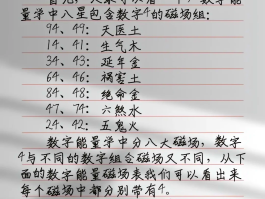 量学中八星包含数字4的磁场组：
94、49：天医土
14、41：生气木
34、43：延年金
64、46：祸害土
84、48：绝命金
47、74：六煞水
24、42：五鬼火
数字能量学中分八大磁场，数字
4与不同的数字组合磁场又不同，从下
面的数字能量磁场表我们可以看出来
每个磁场中都分别带有4。